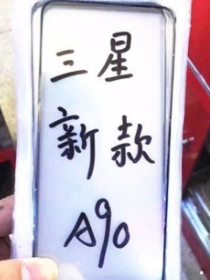 三星
新款
A90